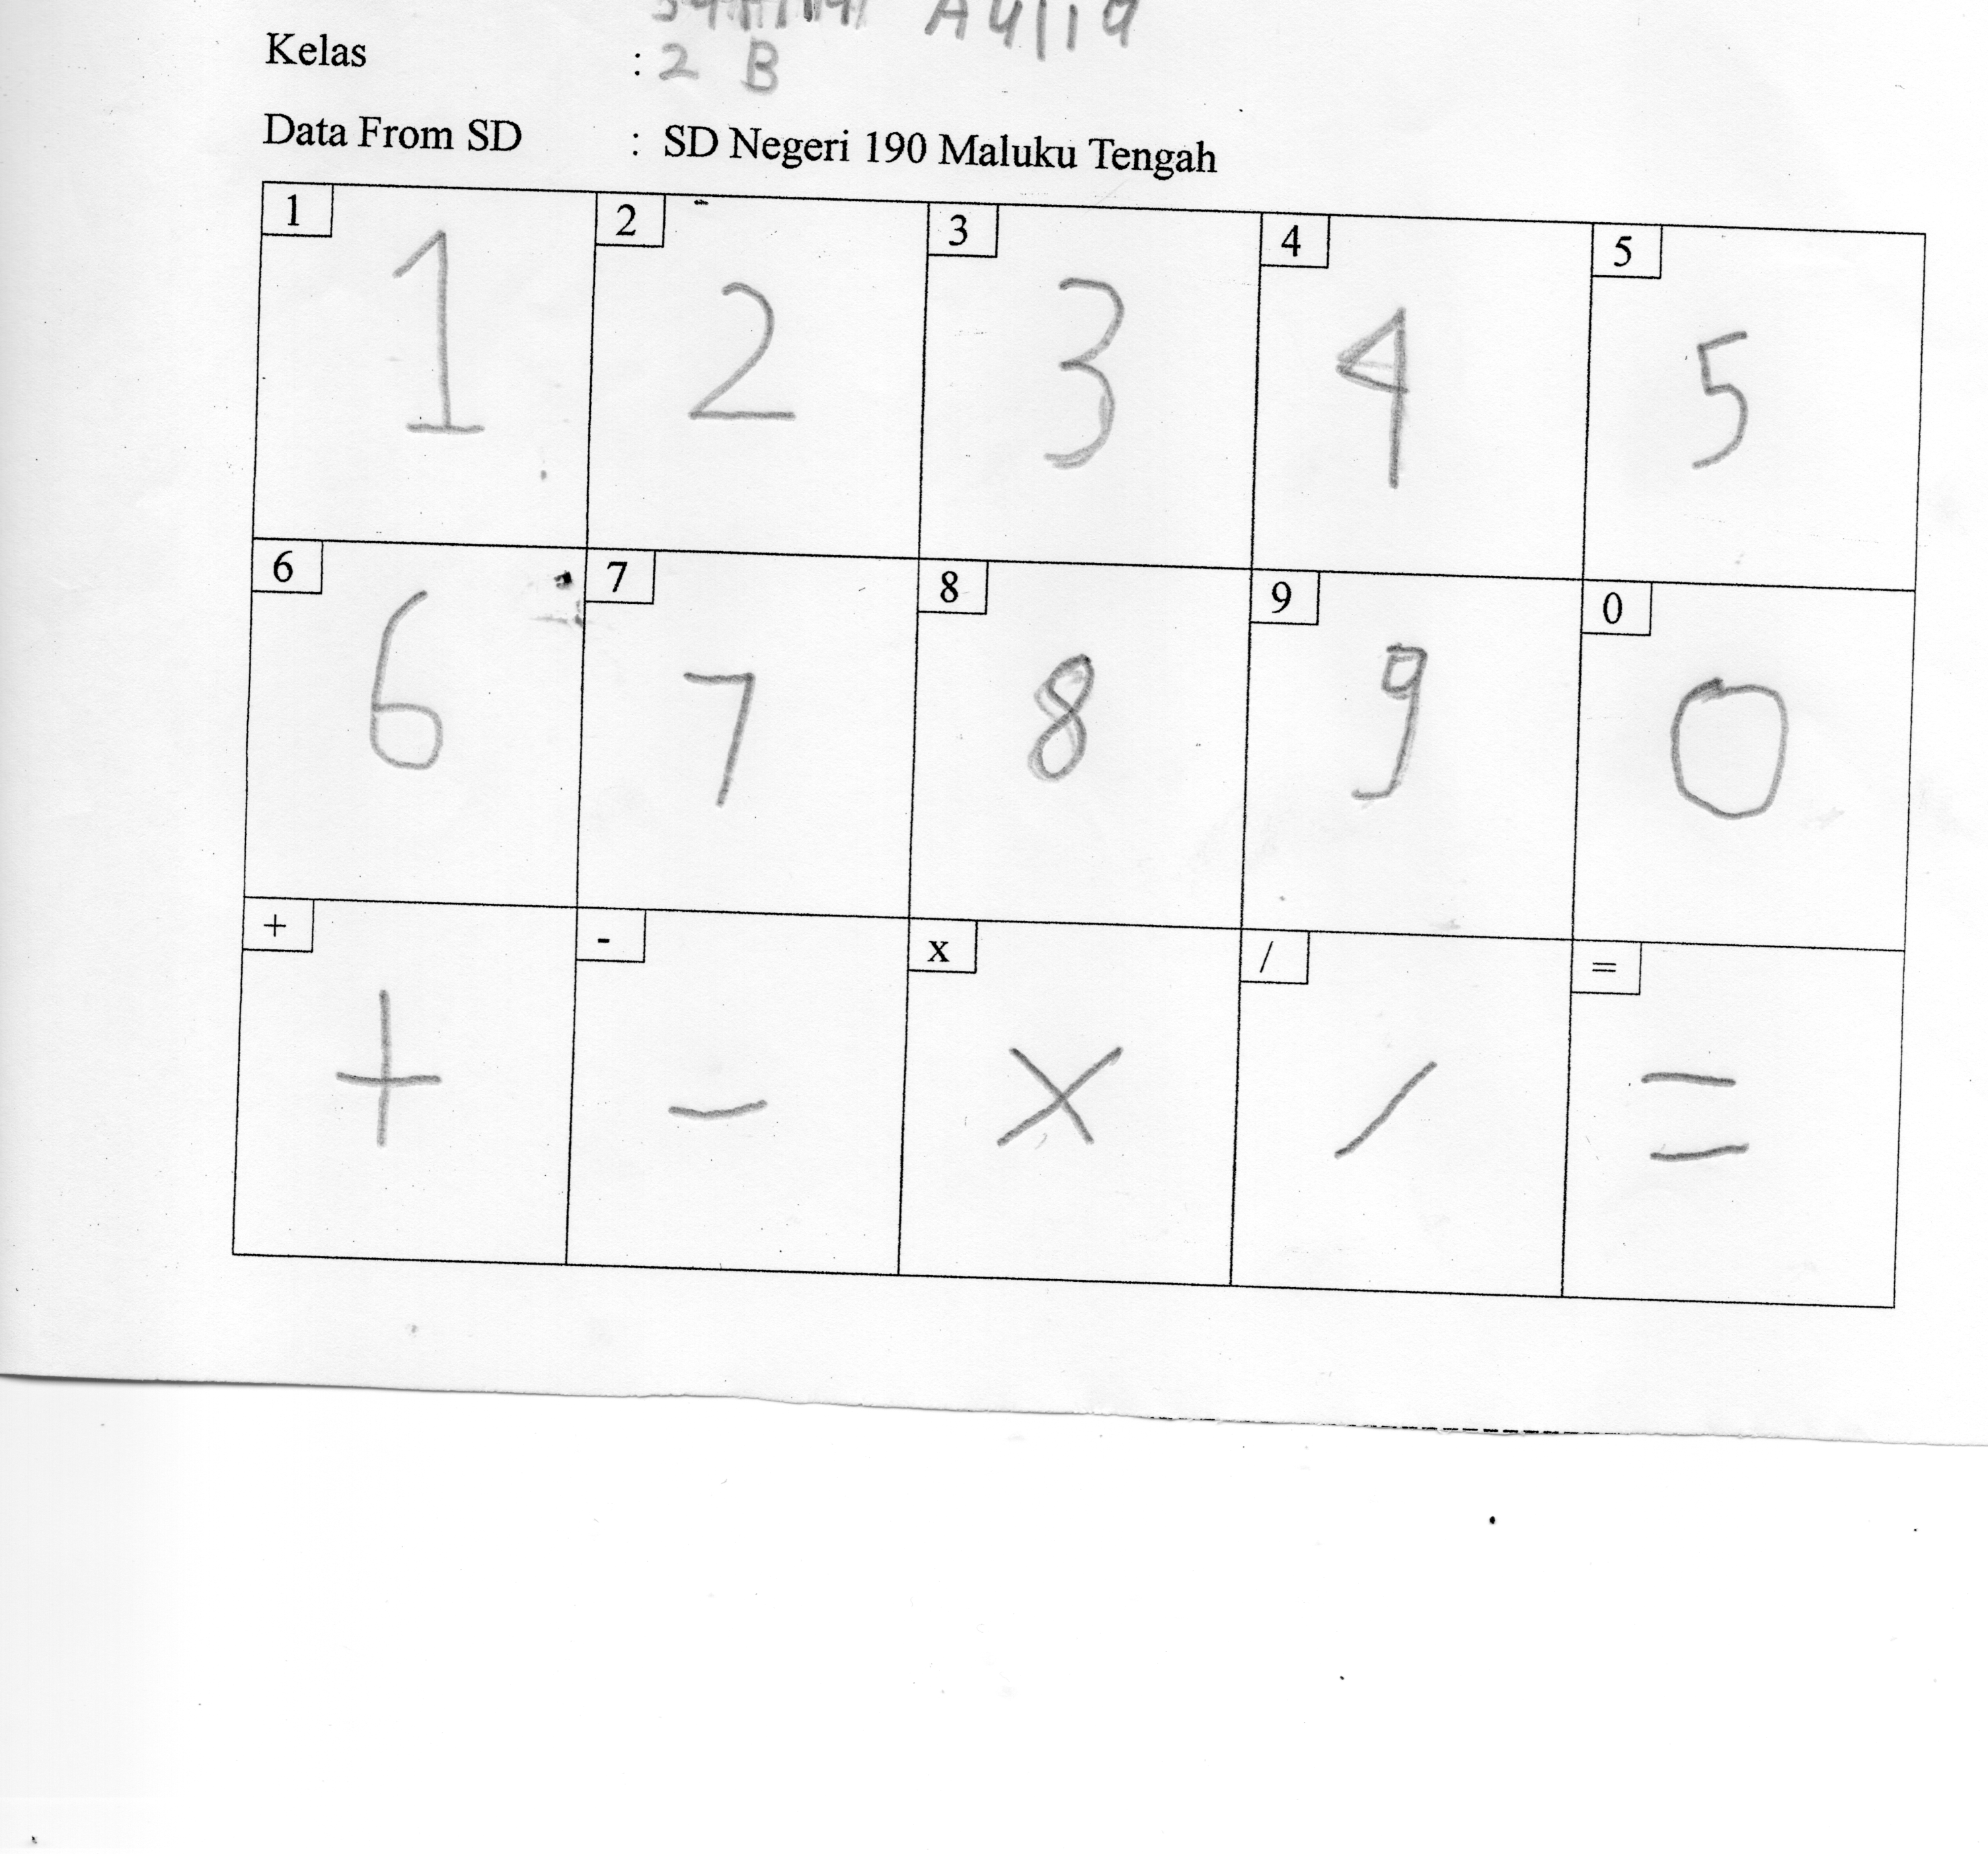 Aulia
Kelas : 2 B
Data From SD : SD Negeri 190 Maluku Tengah
1 2 3 4 5
1 2 3 4 5
6 7 8 9 0
6 7 8 9 0
+ - x / =
+ - x / =